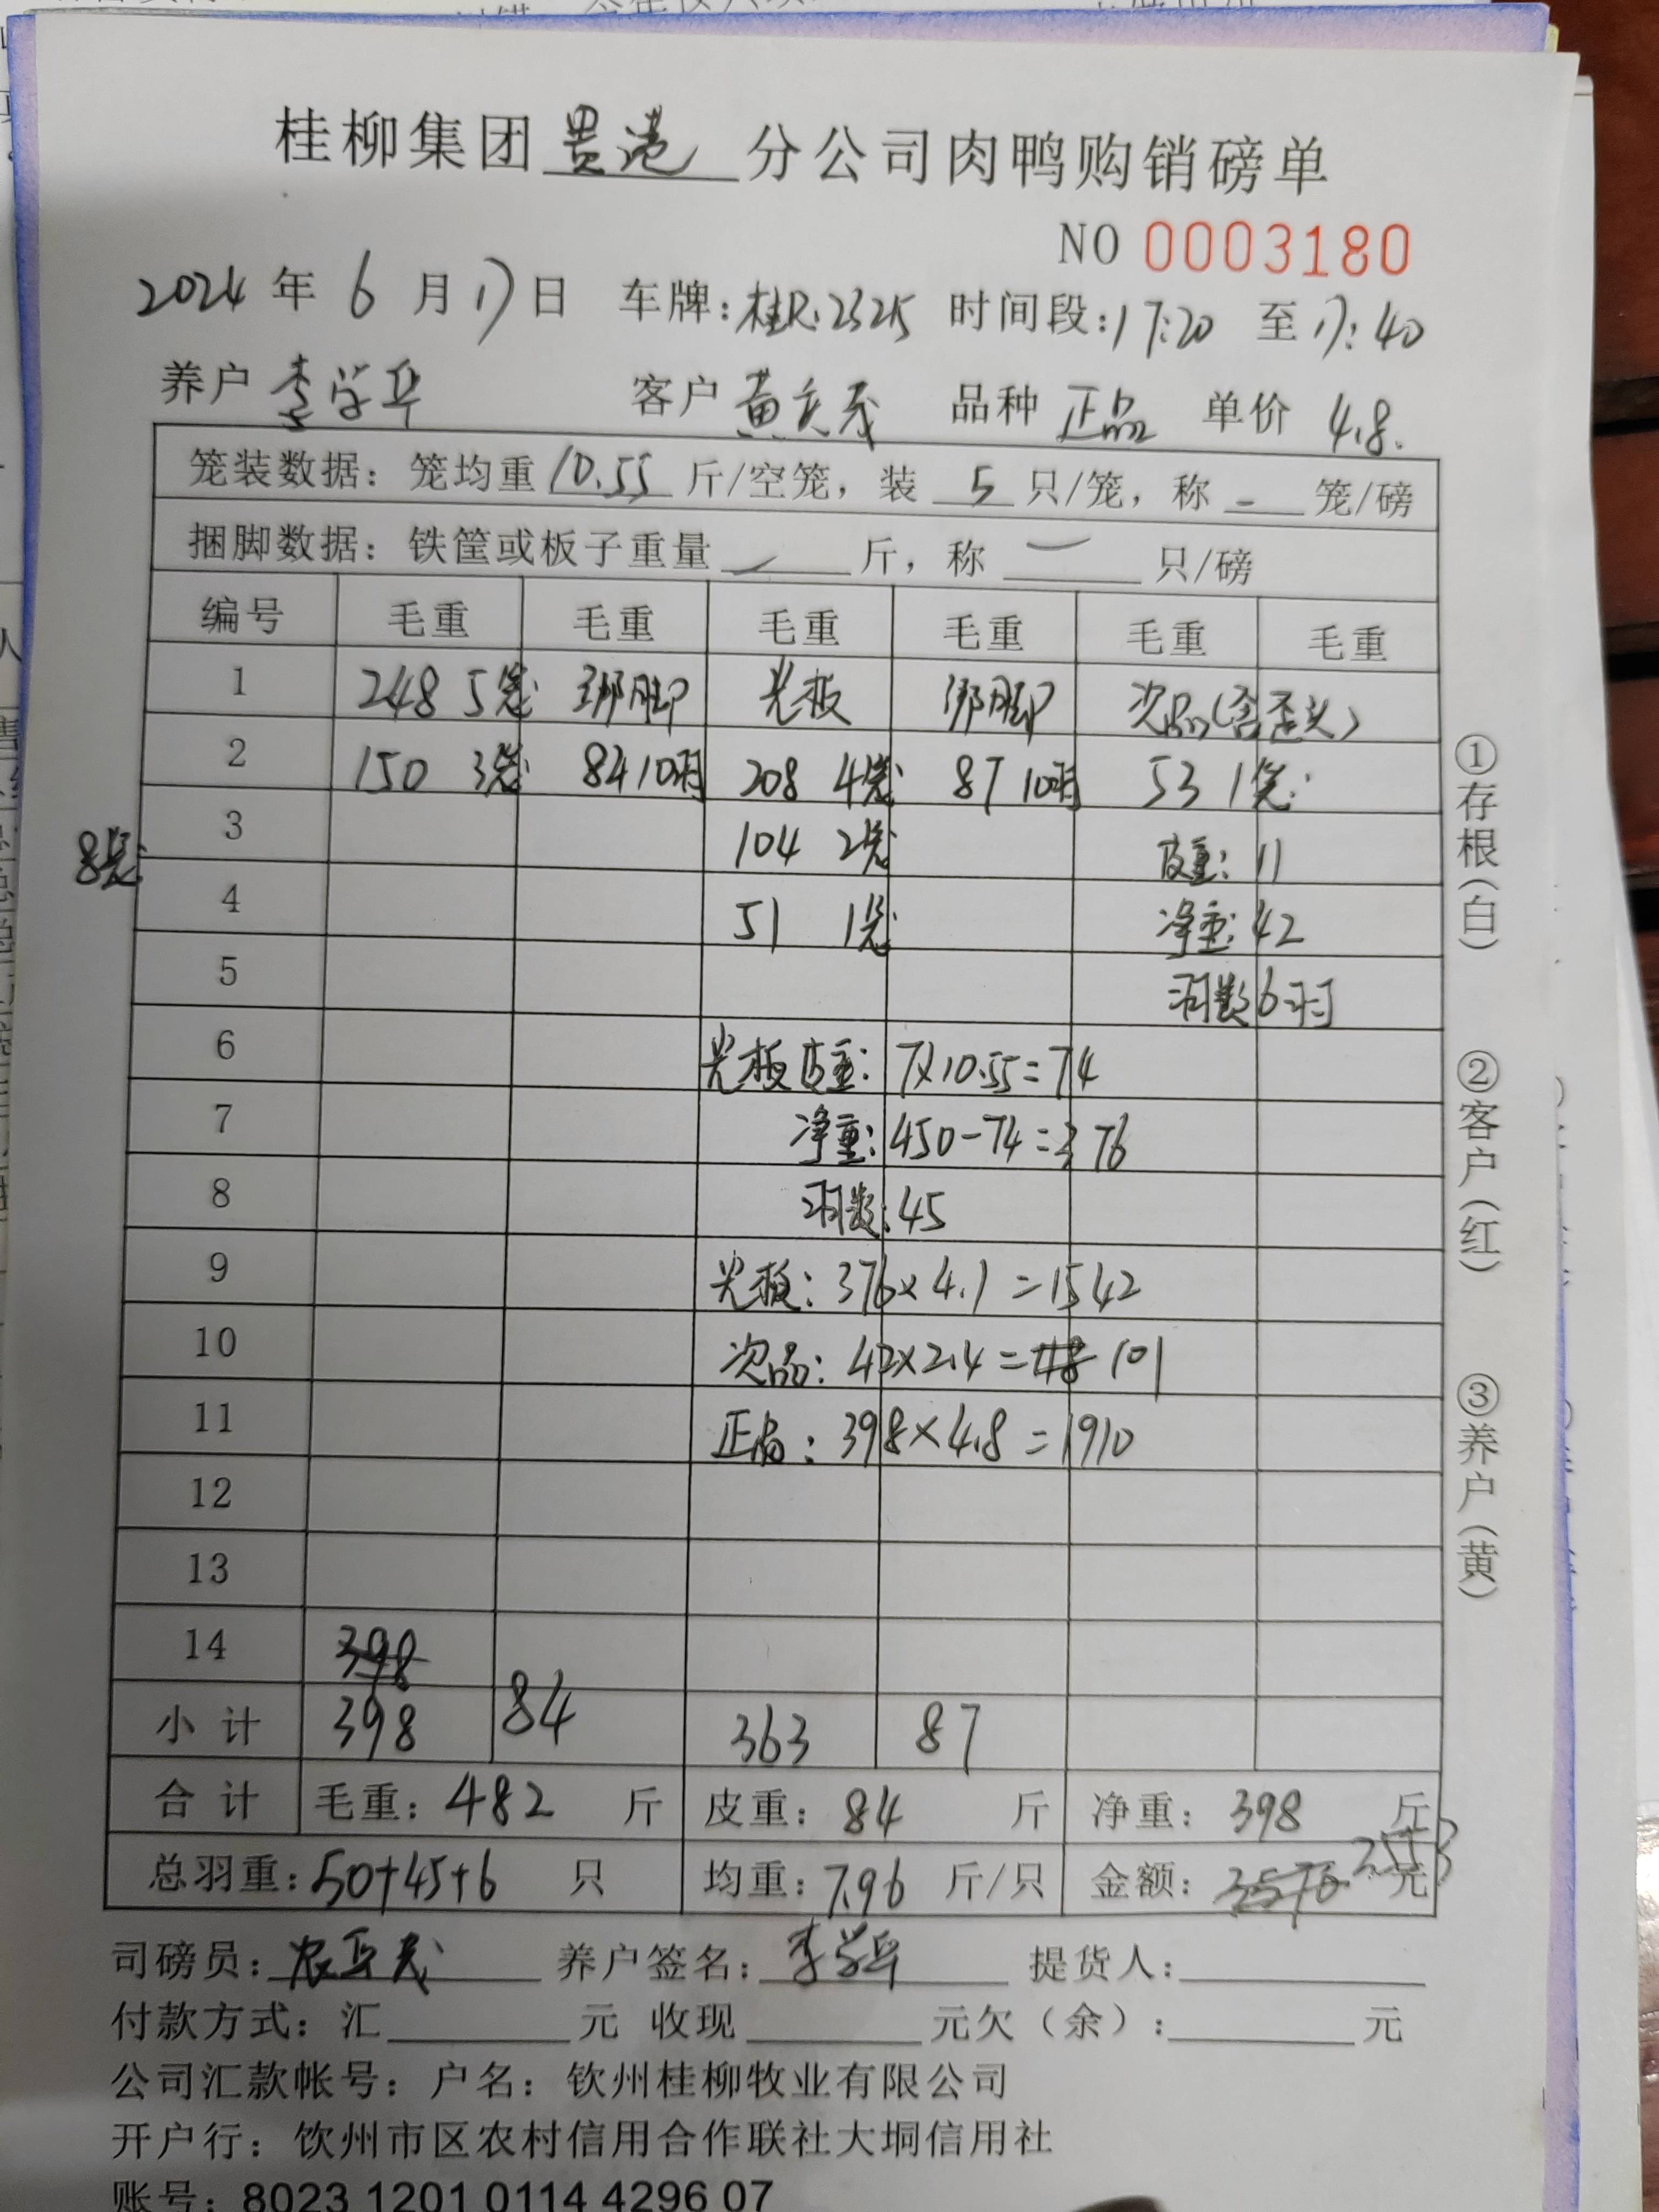 桂柳集团贵港分公司肉鸭购销磅单
NO 0003180
2024年6月17日 车牌:桂R.2325 时间段:17:20至17:40
养户 李学华 客户 黄 茂 品种 正品 单价 4.8.
笼装数据：笼均重10.55斤/空笼，装5只/笼，称-笼/磅
捆脚数据：铁筐或板子重量 一 斤，称 一 只/磅
编号 毛重 毛重 毛重 毛重 毛重 毛重
1 248 5笼 绑脚 光板 绑脚 次品(含歪头)
2 150 3笼 84 10羽 208 4笼 87 10羽 53 1笼
8笼
3 104 2笼 皮重: 11
4 51 1笼 净重: 42
5 羽数6羽
6 光板皮重: 7×10.55=74
7 净重:450-74=376
8 羽数:45
9 光板: 376×4.1=1542
10 次品: 42×2.4= 101
11 正品: 398×4.8=1910
12
13
14 398
小计 398 84 363 87
合计 毛重：482 斤 皮重：84 斤 净重：398 斤
总羽重:50+45+6 只 均重:7.96 斤/只 金额：3576 3553 元
司磅员: 养户签名:李学华 提货人:
付款方式：汇 元 收现 元欠（余）: 元
公司汇款帐号：户名：钦州桂柳牧业有限公司
开户行：饮州市区农村信用合作联社大垌信用社
账号：8023 1201 0114 4296 07
①存根(白)
②客户(红)
③养户(黄)